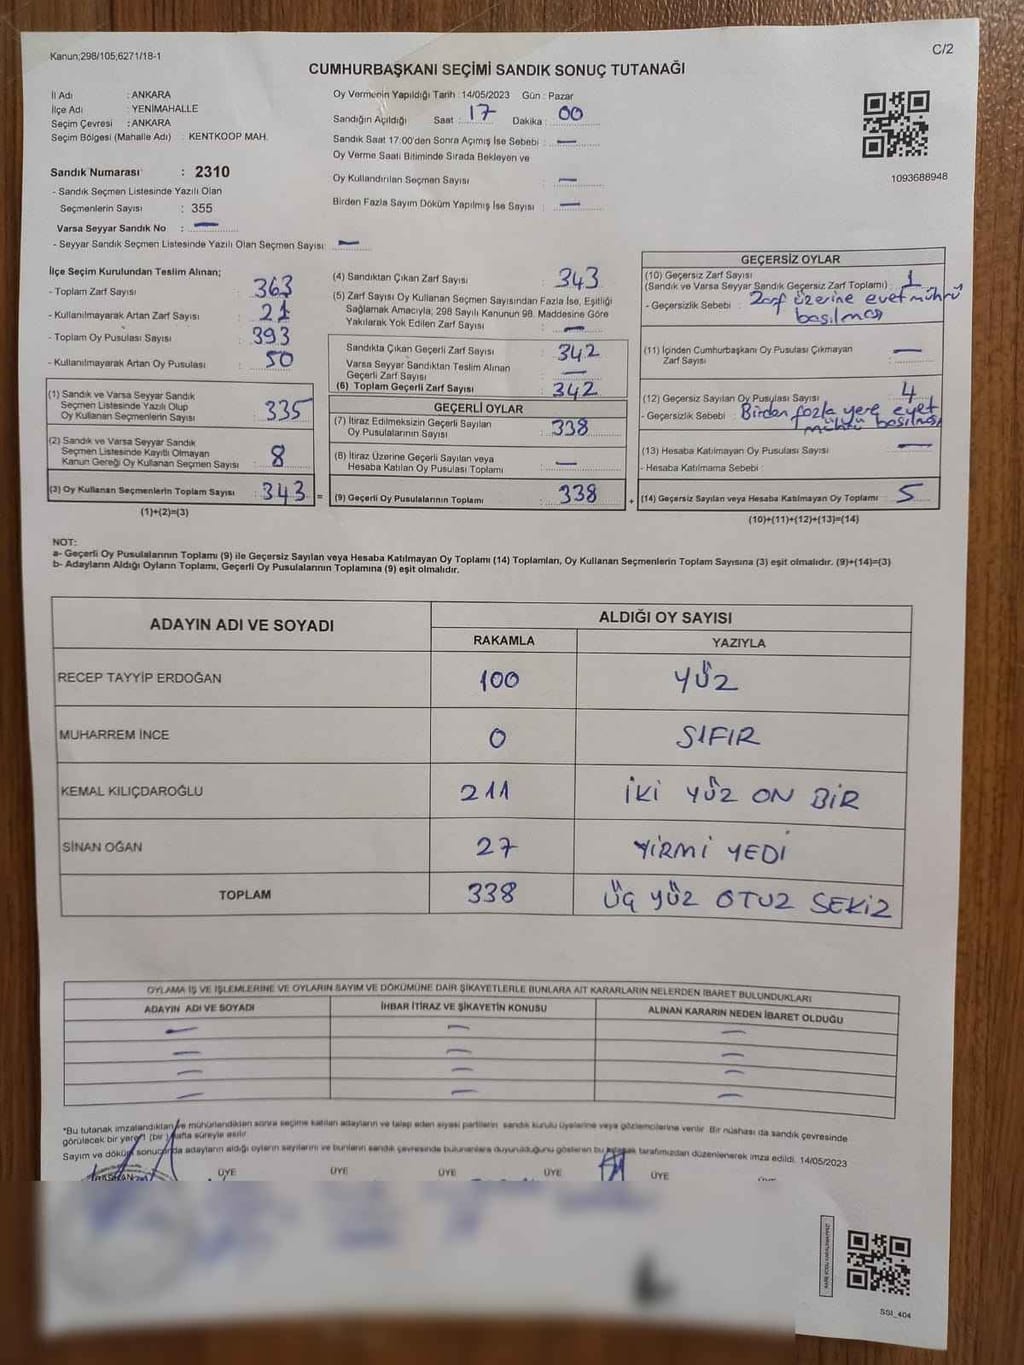 Kanun;298/105;6271/18-1
C/2
CUMHURBAŞKANI SEÇİMİ SANDIK SONUÇ TUTANAĞI
İl Adı : ANKARA
İlçe Adı : YENİMAHALLE
Seçim Çevresi : ANKARA
Seçim Bölgesi (Mahalle Adı) : KENTKOOP MAH.
Sandık Numarası : 2310
- Sandık Seçmen Listesinde Yazılı Olan
Seçmenlerin Sayısı : 355
Varsa Seyyar Sandık No : —
- Seyyar Sandık Seçmen Listesinde Yazılı Olan Seçmen Sayısı: —
Oy Vermenin Yapıldığı Tarih : 14/05/2023 Gün : Pazar
Sandığın Açıldığı Saat : 17 Dakika : 00
Sandık Saat 17:00'den Sonra Açımış İse Sebebi : —
Oy Verme Saati Bitiminde Sırada Bekleyen ve
Oy Kullandırılan Seçmen Sayısı : —
Birden Fazla Sayım Döküm Yapılmış İse Sayısı : —
1093688948
İlçe Seçim Kurulundan Teslim Alınan;
- Toplam Zarf Sayısı : 363
- Kullanılmayarak Artan Zarf Sayısı : 21
- Toplam Oy Pusulası Sayısı : 393
- Kullanılmayarak Artan Oy Pusulası : 50
(1) Sandık ve Varsa Seyyar Sandık
Seçmen Listesinde Yazılı Olup
Oy Kullanan Seçmenlerin Sayısı : 335
(2) Sandık ve Varsa Seyyar Sandık
Seçmen Listesinde Kayıtlı Olmayan
Kanun Gereği Oy Kullanan Seçmen Sayısı : 8
(3) Oy Kullanan Seçmenlerin Toplam Sayısı : 343 =
(1)+(2)=(3)
(4) Sandıktan Çıkan Zarf Sayısı : 343
(5) Zarf Sayısı Oy Kullanan Seçmen Sayısından Fazla İse, Eşitliği
Sağlamak Amacıyla; 298 Sayılı Kanunun 98. Maddesine Göre
Yakılarak Yok Edilen Zarf Sayısı : —
Sandıkta Çıkan Geçerli Zarf Sayısı : 342
Varsa Seyyar Sandıktan Teslim Alınan
Geçerli Zarf Sayısı : —
(6) Toplam Geçerli Zarf Sayısı : 342
GEÇERLİ OYLAR
(7) İtiraz Edilmeksizin Geçerli Sayılan
Oy Pusulalarının Sayısı : 338
(8) İtiraz Üzerine Geçerli Sayılan veya
Hesaba Katılan Oy Pusulası Toplamı : —
(9) Geçerli Oy Pusulalarının Toplamı : 338 +
GEÇERSİZ OYLAR
(10) Geçersiz Zarf Sayısı
(Sandık ve Varsa Seyyar Sandık Geçersiz Zarf Toplamı) : 1
- Geçersizlik Sebebi : Zarf üzerine evet mührü
basılması
(11) İçinden Cumhurbaşkanı Oy Pusulası Çıkmayan
Zarf Sayısı : —
(12) Geçersiz Sayılan Oy Pusulası Sayısı : 4
- Geçersizlik Sebebi : Birden fazla yere evet
mührü basılması
(13) Hesaba Katılmayan Oy Pusulası Sayısı : —
- Hesaba Katılmama Sebebi :
(14) Geçersiz Sayılan veya Hesaba Katılmayan Oy Toplamı : 5
(10)+(11)+(12)+(13)=(14)
NOT:
a- Geçerli Oy Pusulalarının Toplamı (9) ile Geçersiz Sayılan veya Hesaba Katılmayan Oy Toplamı (14) Toplamları, Oy Kullanan Seçmenlerin Toplam Sayısına (3) eşit olmalıdır. (9)+(14)=(3)
b- Adayların Aldığı Oyların Toplamı, Geçerli Oy Pusulalarının Toplamına (9) eşit olmalıdır.
ADAYIN ADI VE SOYADI
ALDIĞI OY SAYISI
RAKAMLA YAZIYLA
RECEP TAYYİP ERDOĞAN 100 YÜZ
MUHARREM İNCE 0 SIFIR
KEMAL KILIÇDAROĞLU 211 İKİ YÜZ ON BİR
SİNAN OĞAN 27 YİRMİ YEDİ
TOPLAM 338 ÜÇ YÜZ OTUZ SEKİZ
OYLAMA İŞ VE İŞLEMLERİNE VE OYLARIN SAYIM VE DÖKÜMÜNE DAİR ŞİKAYETLERLE BUNLARA AİT KARARLARIN NELERDEN İBARET BULUNDUKLARI
ADAYIN ADI VE SOYADI İHBAR İTİRAZ VE ŞİKAYETİN KONUSU ALINAN KARARIN NEDEN İBARET OLDUĞU
— — —
— — —
— — —
— — —
*Bu tutanak imzalandıktan ve mühürlendikten sonra seçime katılan adayların ve talep eden siyasi partilerin sandık kurulu üyelerine veya gözlemcilerine verilir. Bir nüshası da sandık çevresinde
görülecek bir yere 1 (bir) hafta süreyle asılır.
Sayım ve döküm sonucunda adayların aldığı oyların sayılarını ve bunların sandık çevresinde bulunanlara duyurulduğunu gösteren bu tutanak tarafımızdan düzenlenerek imza edildi. 14/05/2023
BAŞKAN ÜYE ÜYE ÜYE ÜYE ÜYE
SSI_404